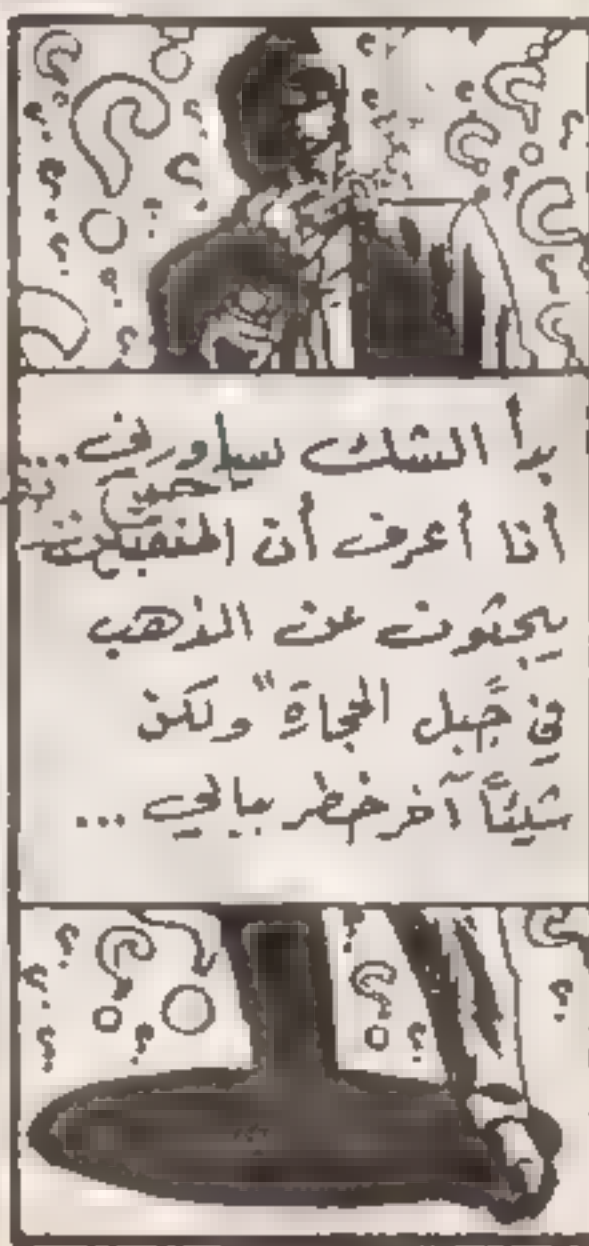 بدأ الشك يساورني...
أنا أعرف أن المنقبين
يبحثون عن الذهب
في جَبل الحجارة" ولكن
شيئاً آخر خطر ببالي ...